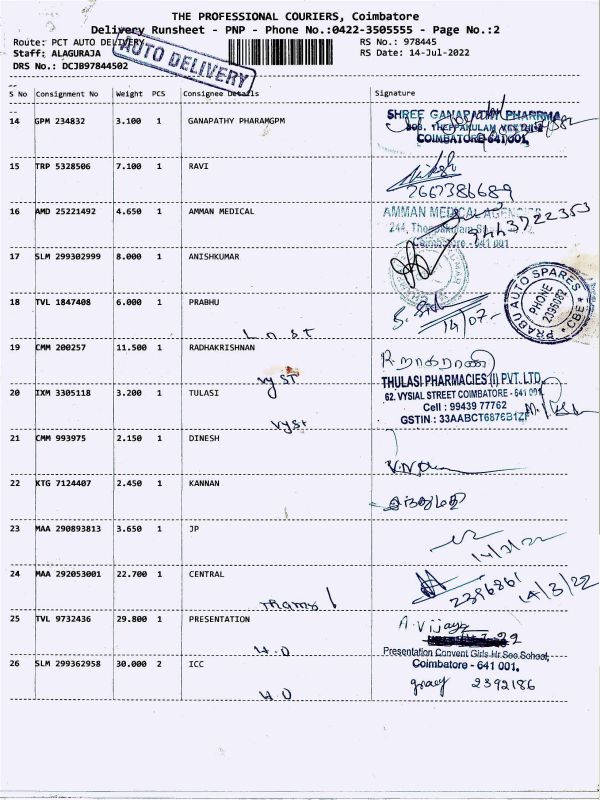 THE PROFESSIONAL COURIERS, Coimbatore
Delivery Runsheet - PNP - Phone No.:0422-3505555 - Page No.:2
Route: PCT AUTO DELIVERY
RS No.: 978445
Staff: ALAGURAJA
RS Date: 14-Jul-2022
DRS No.: DCJB97844502
AUTO DELIVERY
S No Consignment No Weight PCS Consignee Details Signature
14 GPM 234832 3.100 1 GANAPATHY PHARAMGPM
SHREE GANAPATHY PHARRMA
COIMBATORE-641 001.
15 TRP 5328506 7.100 1 RAVI
7667386689
16 AMD 25221492 4.650 1 AMMAN MEDICAL
AMMAN MEDICAL AGENCIES
9443722353
Coimbatore - 641 001
17 SLM 299302999 8.000 1 ANISHKUMAR
18 TVL 1847408 6.000 1 PRABHU
14/07-
PRABU AUTO SPARES
PHONE
2396082
* CBE *
19 CMM 200257 11.500 1 RADHAKRISHNAN
Vy ST
20 IXM 3305118 3.200 1 TULASI
THULASI PHARMACIES (I) PVT. LTD.
62. VYSIAL STREET COIMBATORE - 641 001.
Cell : 99439 77762
GSTIN : 33AABCT6876B1ZF
Vyst
21 CMM 993975 2.150 1 DINESH
22 KTG 7124407 2.450 1 KANNAN
இந்துமதி
23 MAA 290893813 3.650 1 JP
24 MAA 292053001 22.700 1 CENTRAL
2396861
14/3/22
25 TVL 9732436 29.800 1 PRESENTATION
A. Vijaya
H.O
Presentation Convent Girls Hr.Sec.School,
Coimbatore - 641 001.
26 SLM 299362958 30.000 2 ICC
2392186
H.O